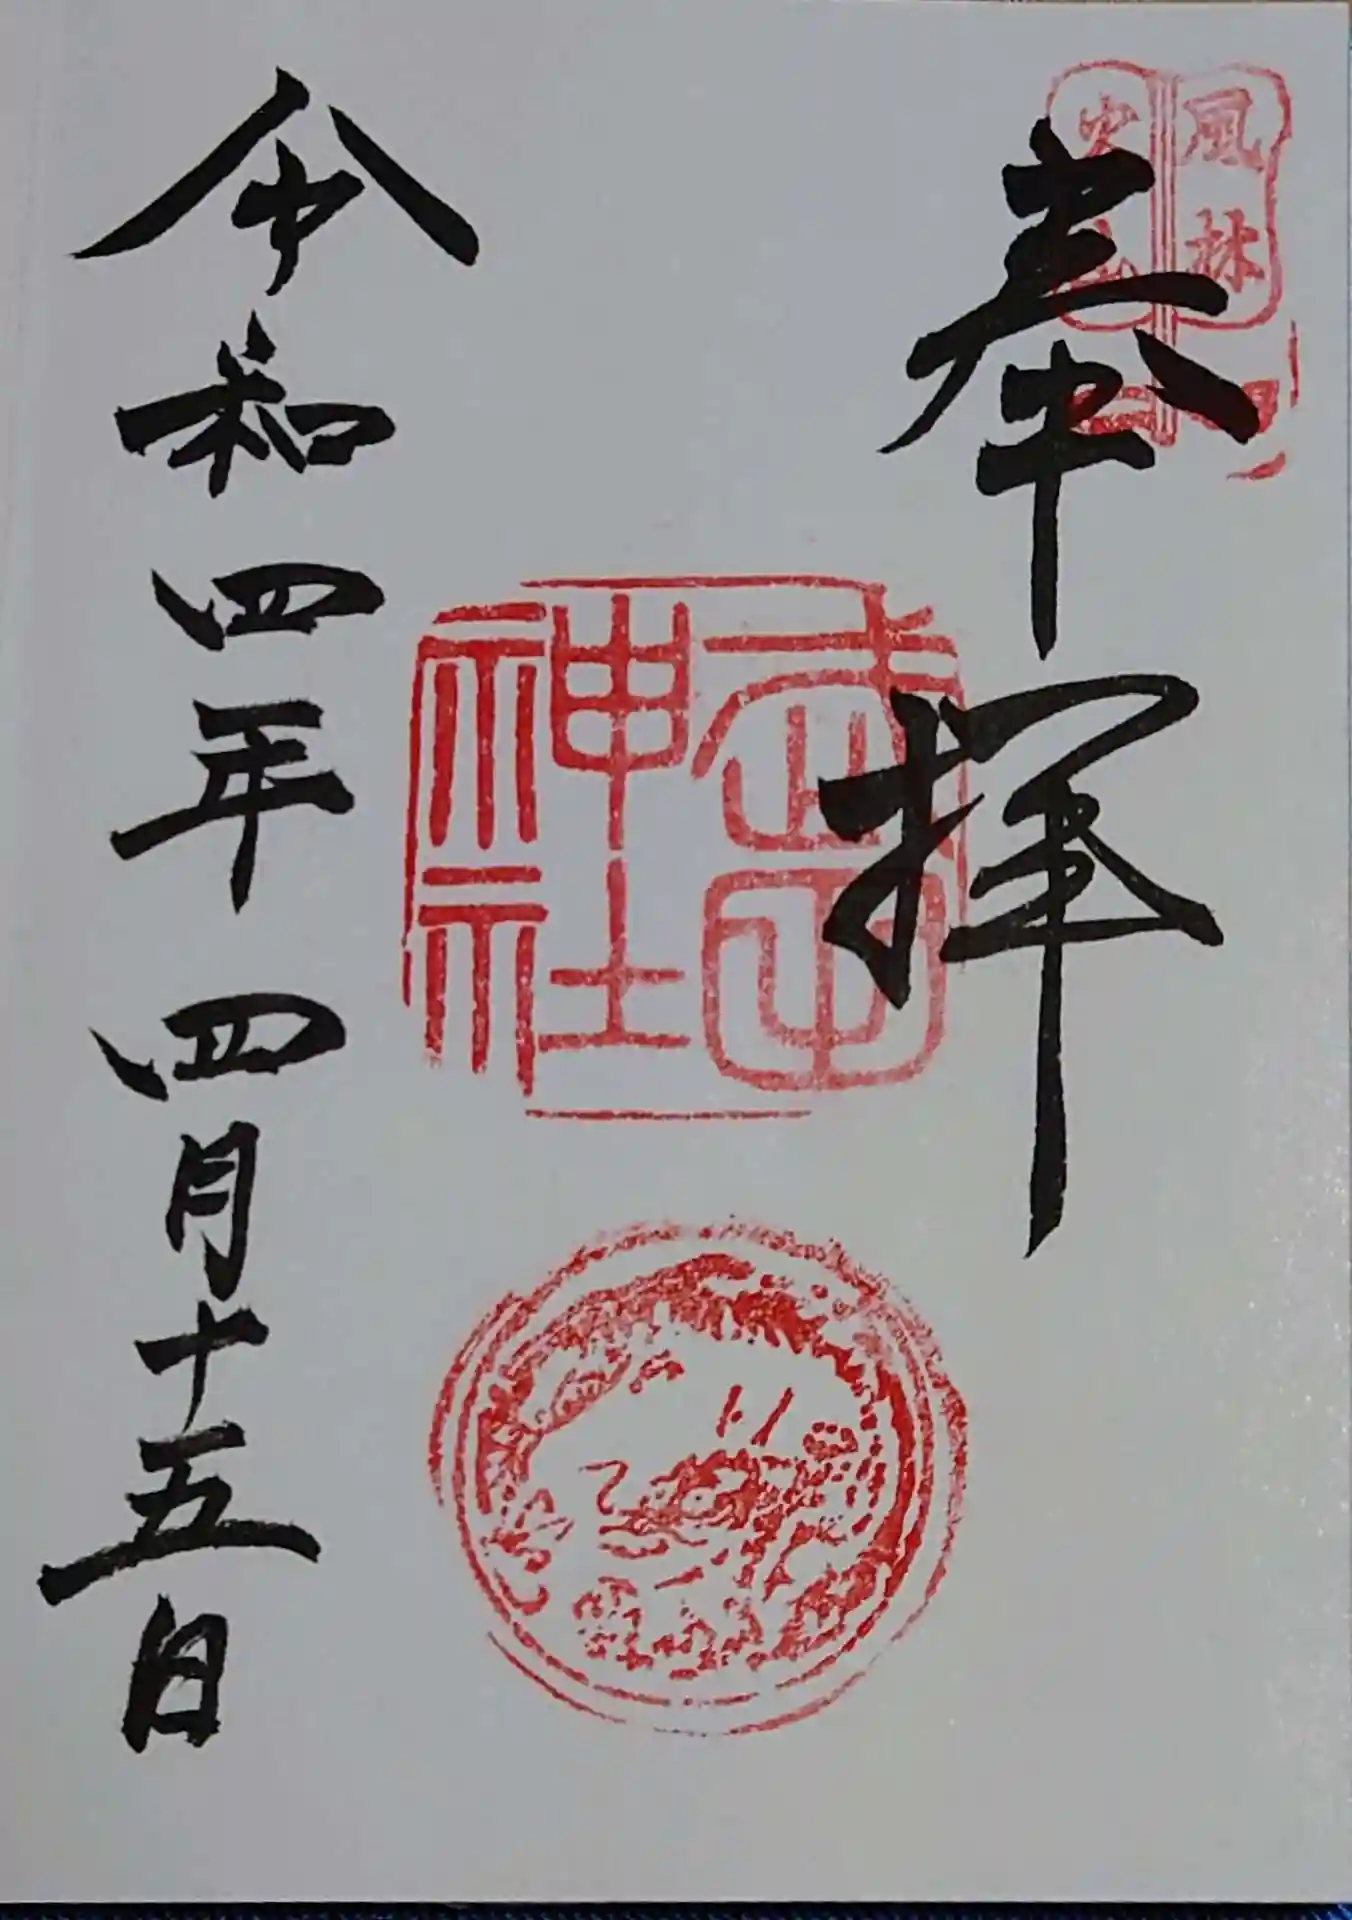 奉拝
風林
火山
武田
神社
令和四年四月十五日